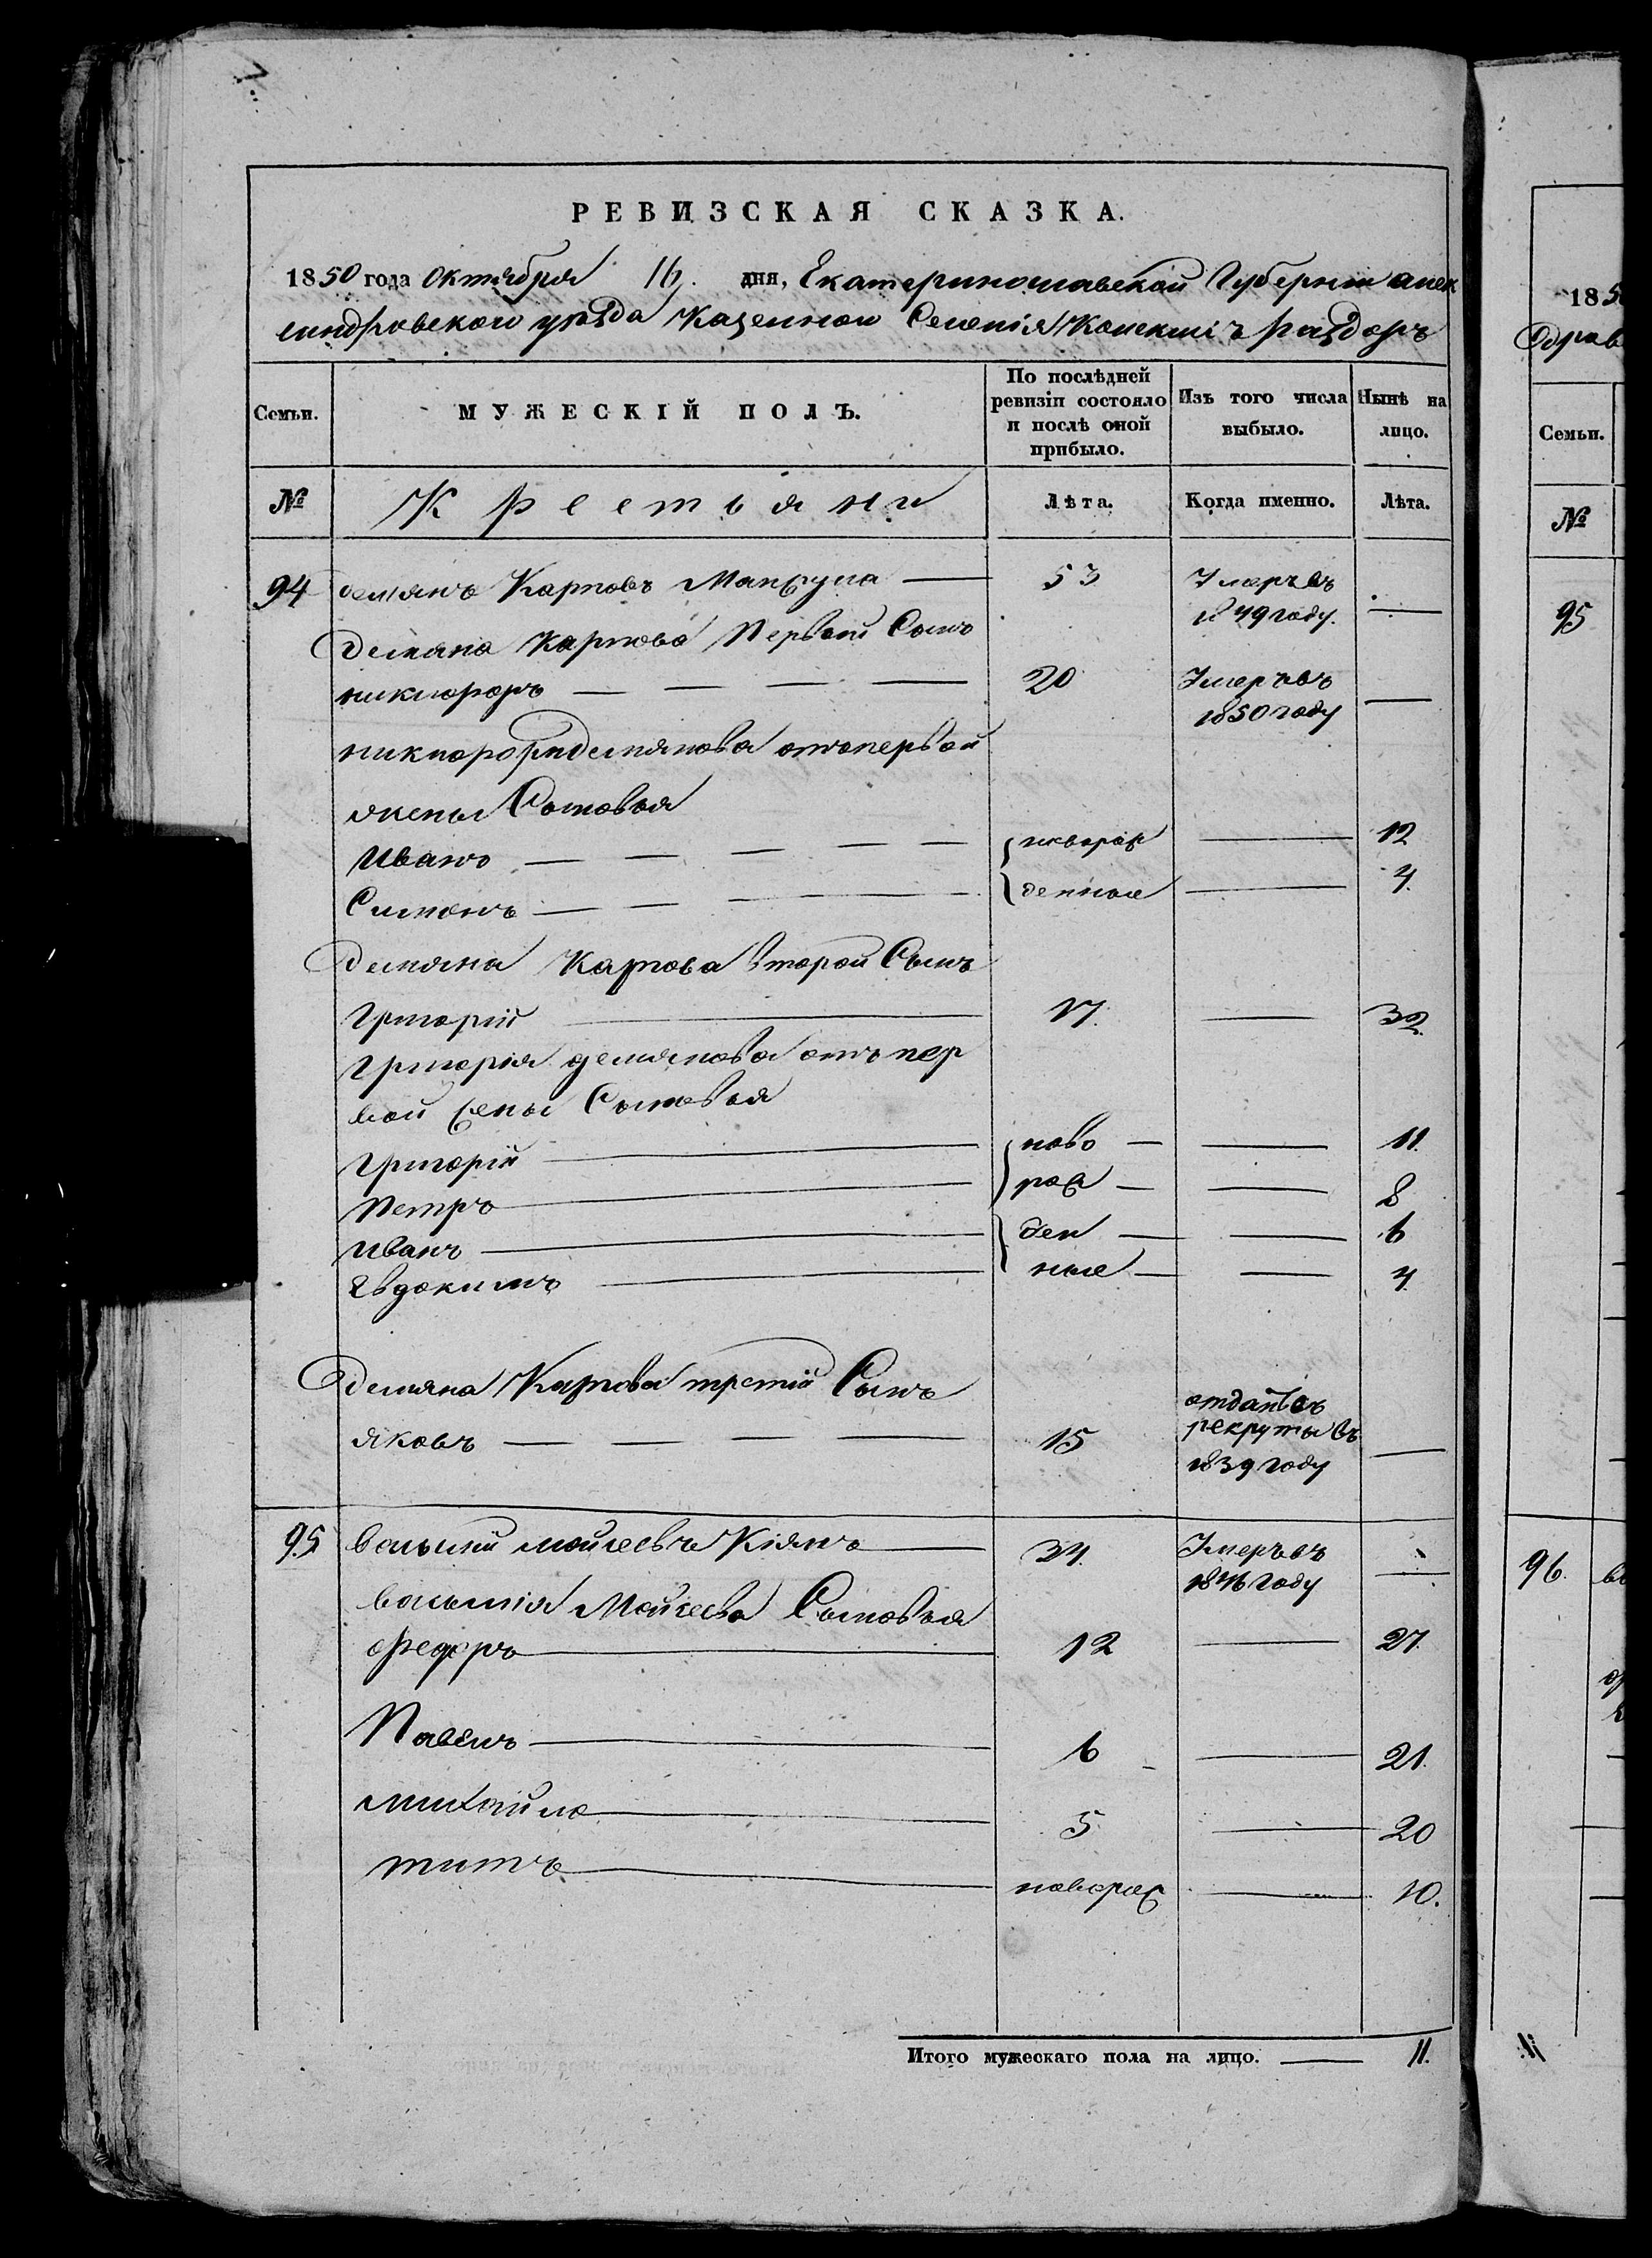 РЕВИЗСКАЯ СКАЗКА.
1850 года Октября 16. дня, Екатеринославской Губернии алек
сандровского уѣзда Казенного Селенія Конскихъ раздоръ
Семьи. МУЖЕСКІЙ ПОЛЪ. По послѣдней ревизіи состояло и послѣ оной прибыло. Изъ того числа выбыло. Нынѣ на лицо.
№ Крестьяни Лѣта. Когда именно. Лѣта.
94 демянъ Карповъ 53 Умеръ въ 1849 году. —
Демяна Карпова Первой Сынъ
никифоръ — 20 Умеръ въ 1850 году —
никифора демянова отъ первой
жены Сыновья
Иванъ — новорож — 12
Симонъ — денные — 4.
Демяна Карпова второй Сынъ
Григорій — 17. — 32.
Григорія демянова отъ пер
вой жены Сыновья
Григорій — ново — 11.
Петръ — рож — 8
Иванъ — ден — 6
Евдокимъ — ные — 4.
Демяна Карпова третій Сынъ
яковъ — 15 отданъ въ рекруты въ 1839 году —
95 василій мойсеевъ Кіянъ — 34. Умеръ въ 1846 году —
василія Мойсеева Сыновья
федоръ — 12 — 27.
Павелъ — 6 — 21.
михайло — 5 — 20
титъ — новорож — 10.
Итого мужескаго пола на лицо. — 11.
185
Семьи.
№
95
96.